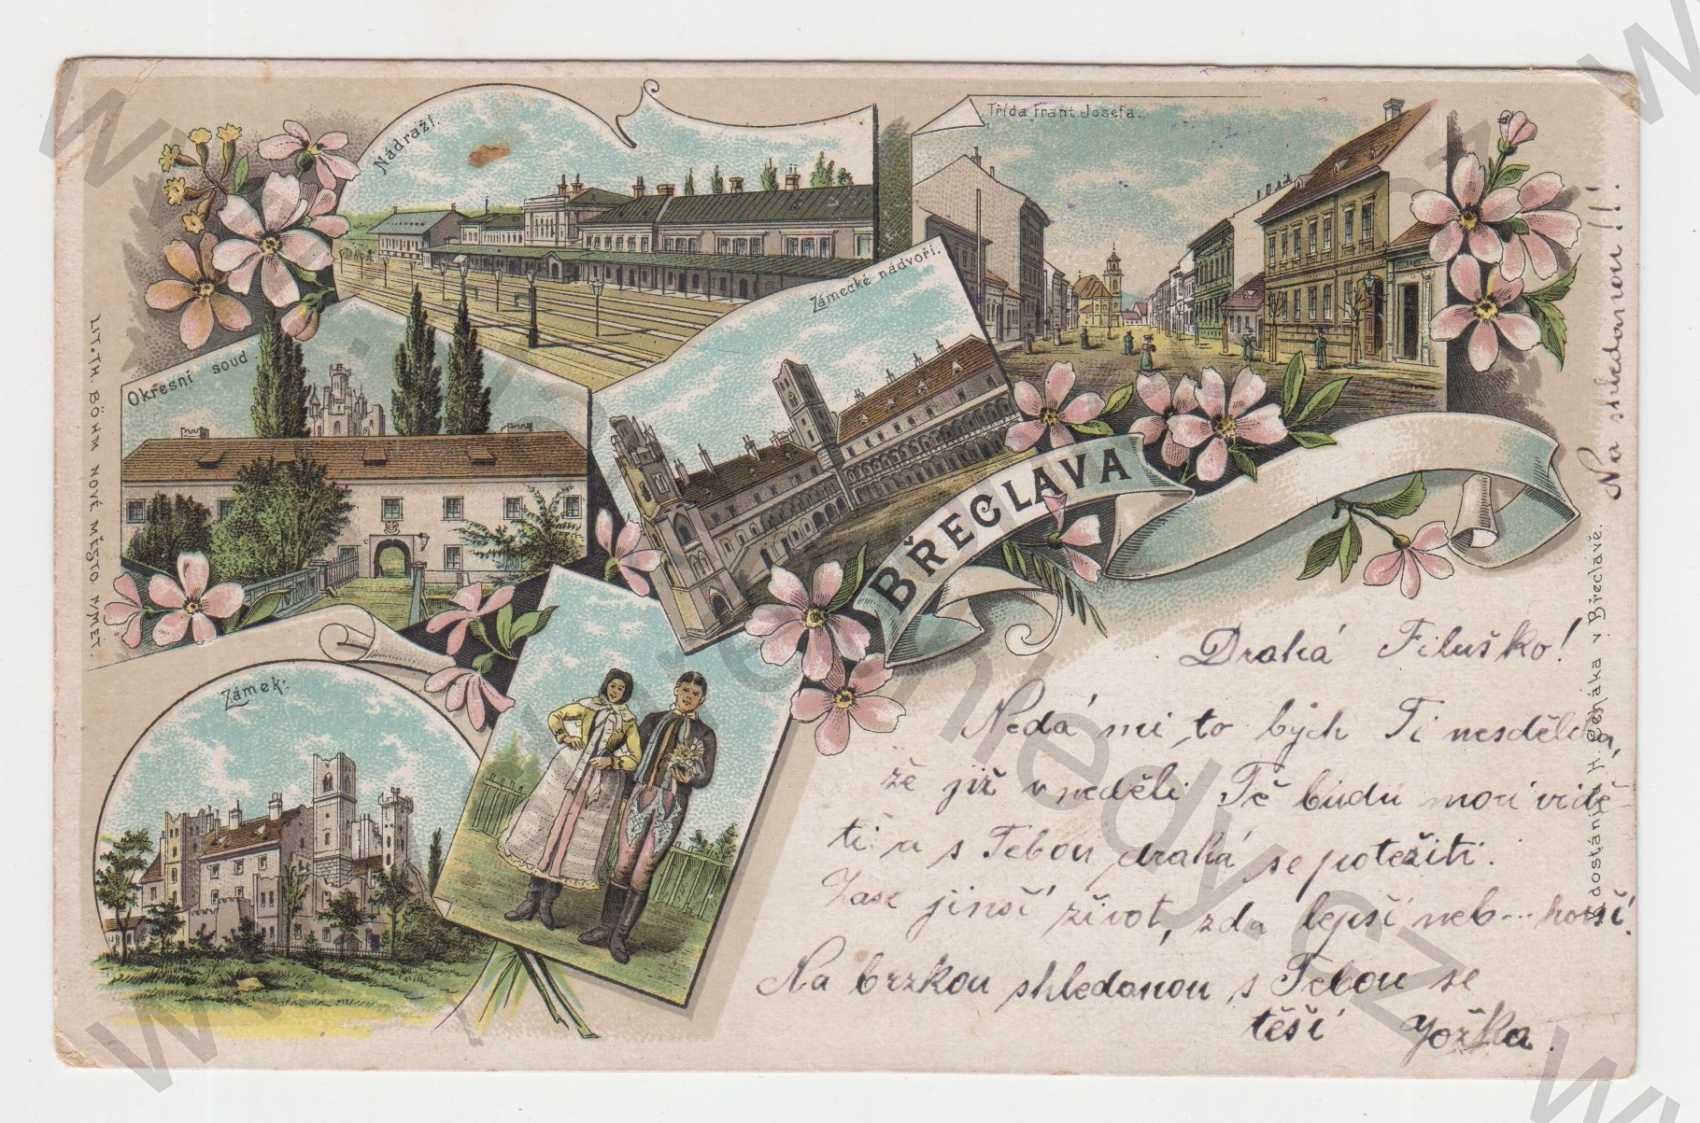 Nádraží.
Třída Frant. Josefa.
Zámecké nádvoří.
Okresní soud.
BŘECLAVA
Zámek.
LIT. TH. BÖHM NOVÉ MĚSTO N/MET.
K dostání H. Čeňáka v Břeclavě.
Na shledanou!!
Drahá Filuško!
Nedá mi to bých Ti nesdělila,
že již v neděli Tě budu moci vidě-
ti a s Tebou drahá se potěžiti.
Zase jinší život, zda lepší neb... horší.
Na brzkou shledanou s Tebou se
těší Jožka.